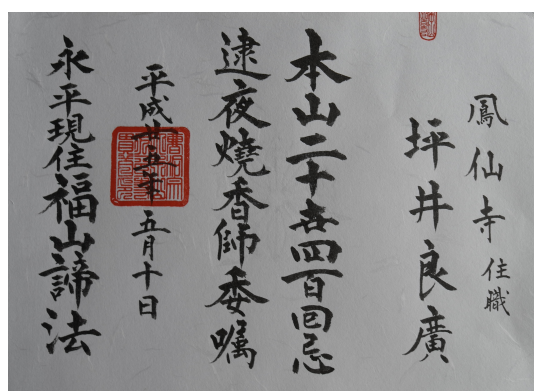 鳳仙寺 住職
坪井良廣
本山二十世四百回忌
逮夜燒香師委嘱
平成廿五年五月十日
永平現住福山諦法